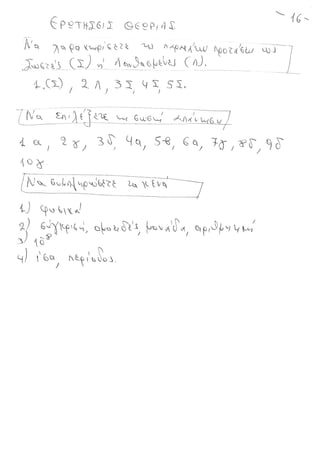 - 16 -
ΕΡΩΤΗΣΕΙΣ ΘΕΩΡΙΑΣ
Να χαρακτηρίσετε τις παρακάτω προτάσεις ως
Σωστές (Σ) ή Λανθασμένες (Λ).
1.(Σ), 2Λ, 3Σ, 4Σ, 5Σ.
Να επιλέξετε τη σωστή απάντηση
1α, 2γ, 3δ, 4α, 5β, 6α, 7γ, 8δ, 9δ
10γ
Να συμπληρώσετε τα κενά
1) φυσικά
2) σύγκριση, ομοειδές, μονάδα, αριθμητική
3) 10⁸
4) ίσα, περίοδος.